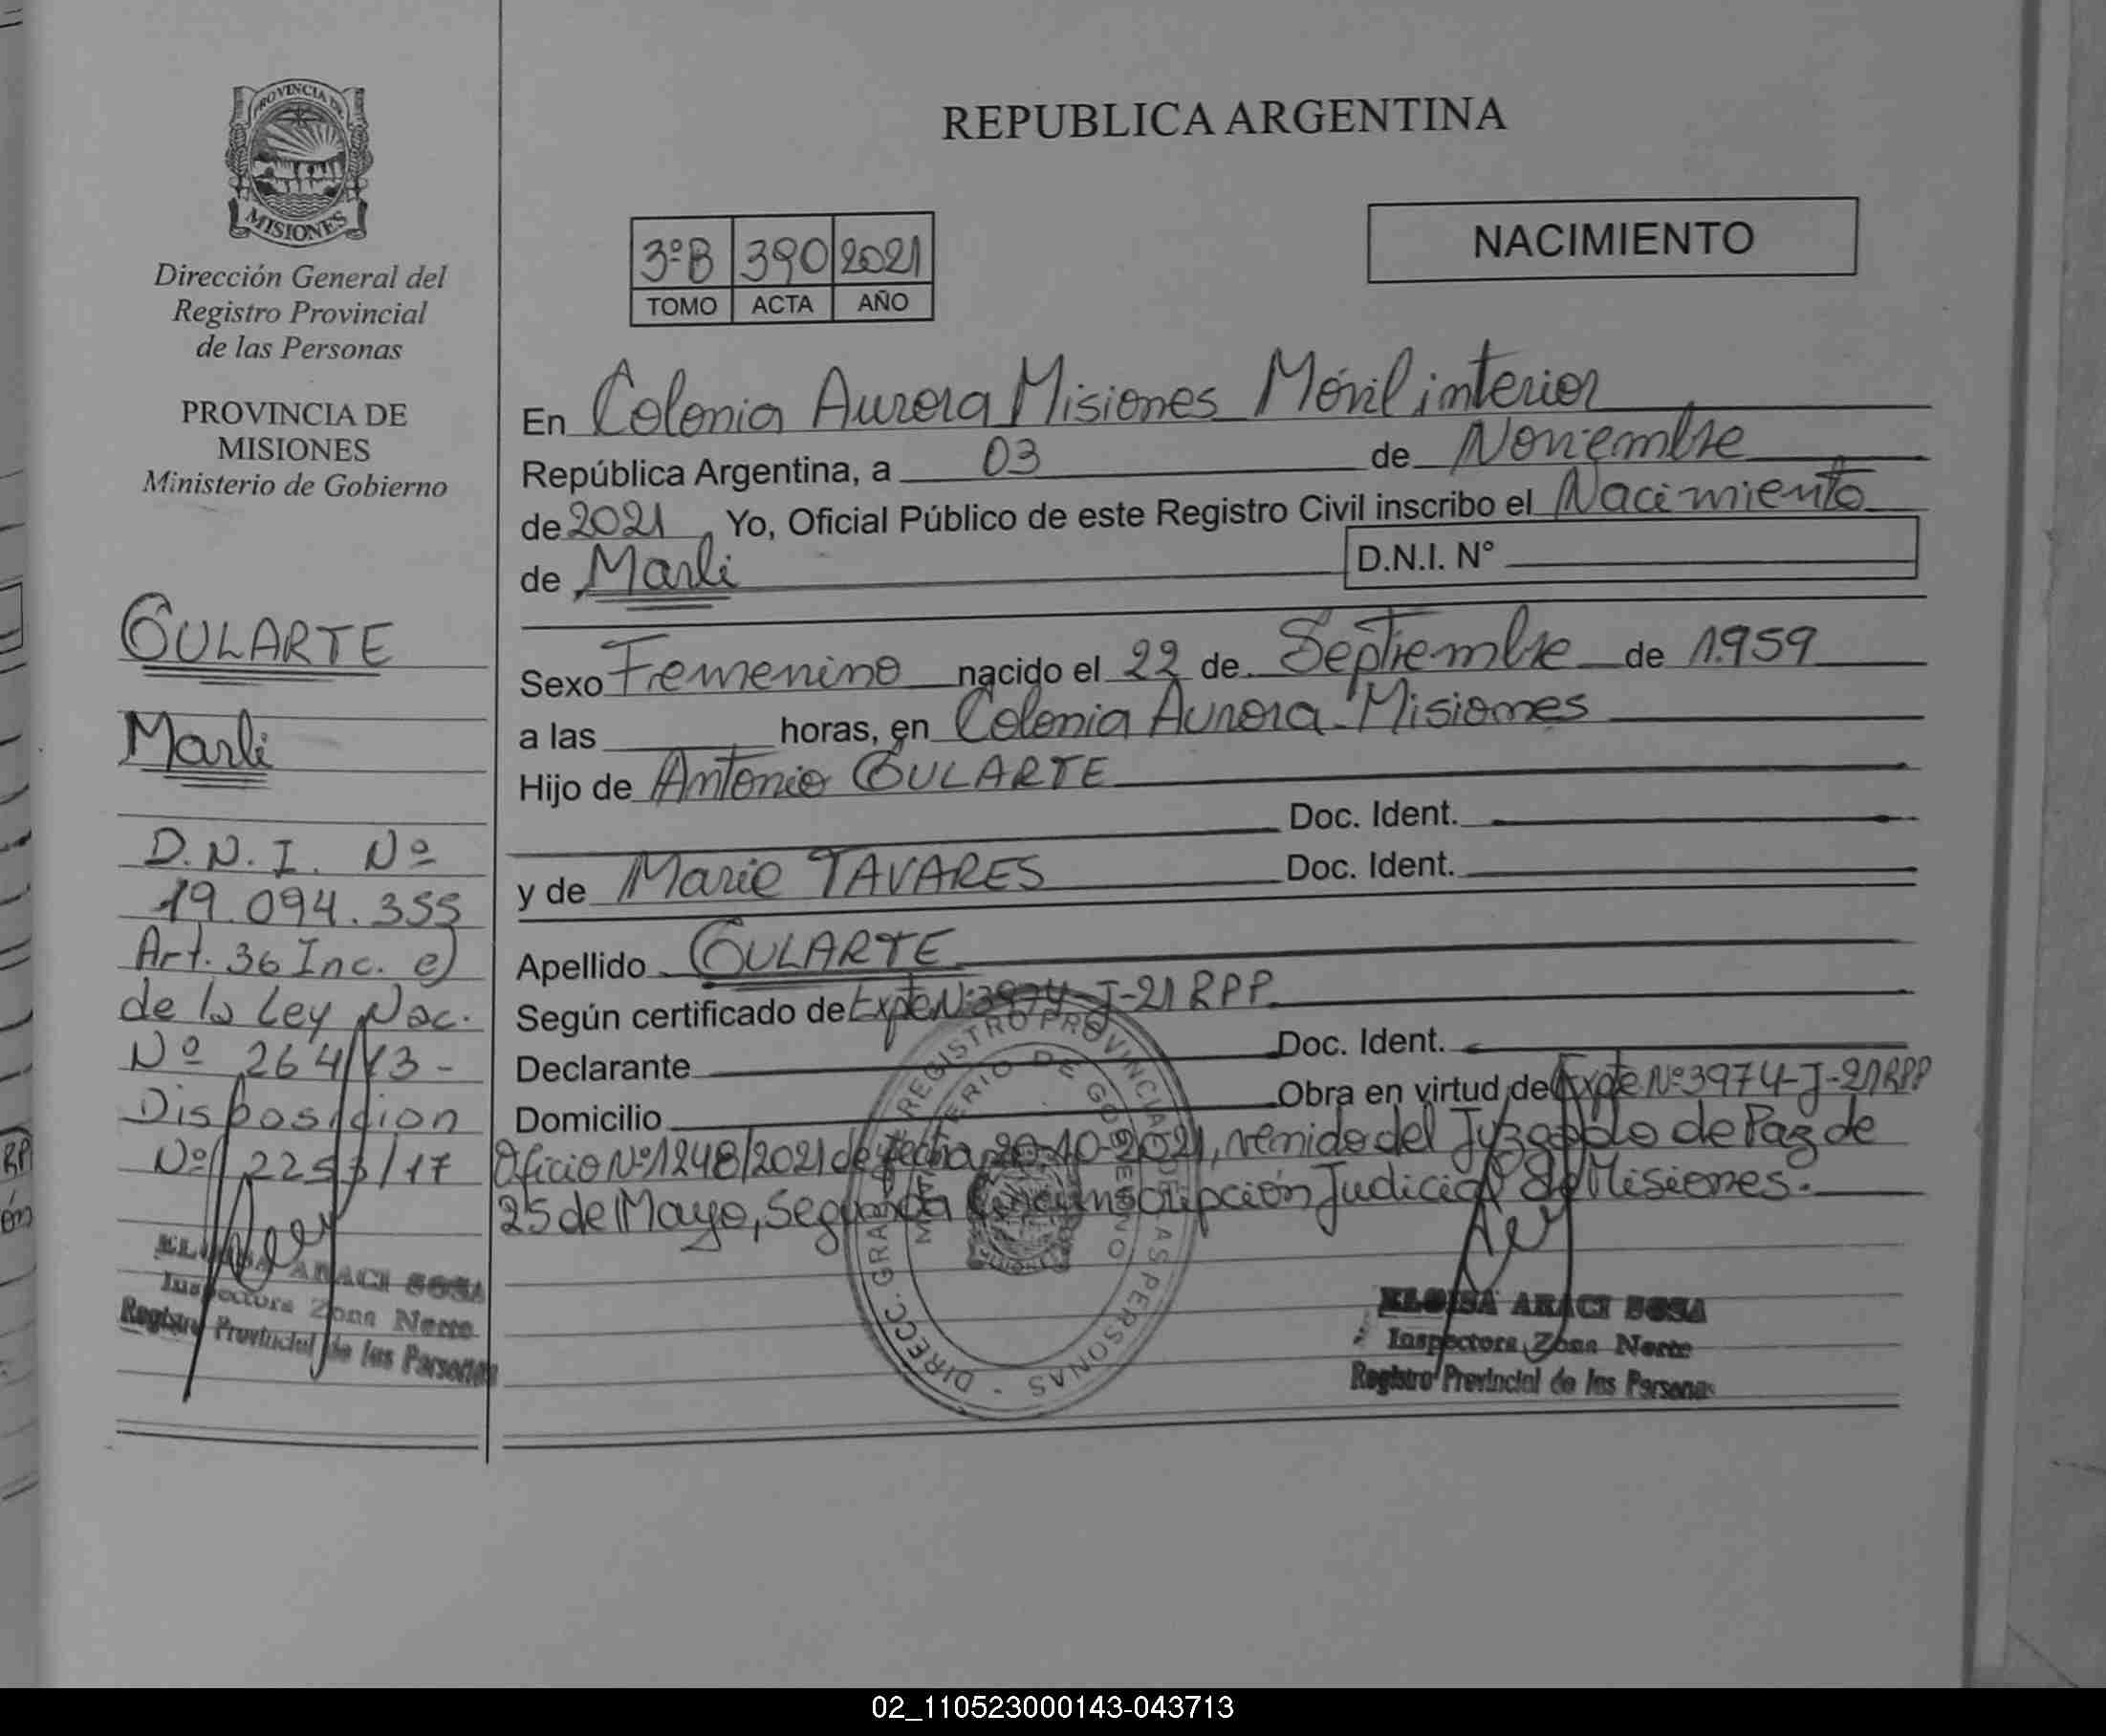 PROVINCIA DE
MISIONES
Dirección General del
Registro Provincial
de las Personas
PROVINCIA DE
MISIONES
Ministerio de Gobierno
GULARTE
Marli
D.N.I. Nº
19.094.355
Art. 36 Inc. e)
de la Ley Nac.
Nº 264/13-
Disposicion
Nº 2253/17
ELOISA ARACI SOSA
Inspectora Zona Norte
Registro Provincial de las Personas
REPUBLICA ARGENTINA
3ºB 390 2021
TOMO ACTA AÑO
NACIMIENTO
En Colonia Aurora Misiones Móvil interior
República Argentina, a 03 de Noviembre
de 2021, Yo, Oficial Público de este Registro Civil inscribo el Nacimiento
de Marli D.N.I. N°
Sexo Femenino nacido el 22 de Septiembre de 1.959
a las horas, en Colonia Aurora-Misiones
Hijo de Antonio GULARTE
Doc. Ident.
y de Marie TAVARES Doc. Ident.
Apellido GULARTE
Según certificado de Expte Nº3974-J-21RPP
Declarante Doc. Ident.
Domicilio Obra en virtud de Expte Nº3974-J-21RPP
Oficio Nº1248/2021 de fecha 20-10-2021, venido del Juzgado de Paz de
25 de Mayo, Segunda Circunscripción Judicial de Misiones.
DIRECC. GRAL. REGISTRO PROVINCIAL DE LAS PERSONAS
MINISTERIO DE GOBIERNO
ELOISA ARACI SOSA
Inspectora Zona Norte
Registro Provincial de las Personas
RP
02_110523000143-043713